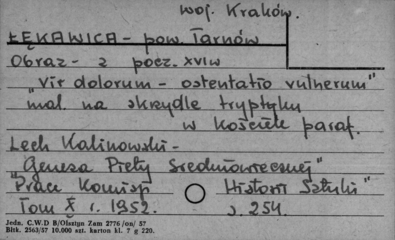 woj. Kraków.
ŁĘKAWICA - pow. Tarnów
Obraz - z pocz. XVI w
"Vir dolorum - ostentatio vulnerum"
mal. na skrzydle tryptyku
w kościele paraf.
Lech Kalinowski -
"Geneza Piety średniowiecznej"
"Prace Komisji Historii Sztuki"
Tom X r. 1952. s. 254.
Jedn. C.W D B/Olsztyn Zam 2776 /on/ 57
Blhk. 2563/57 10.000 szt. karton kl. 7 g 220.